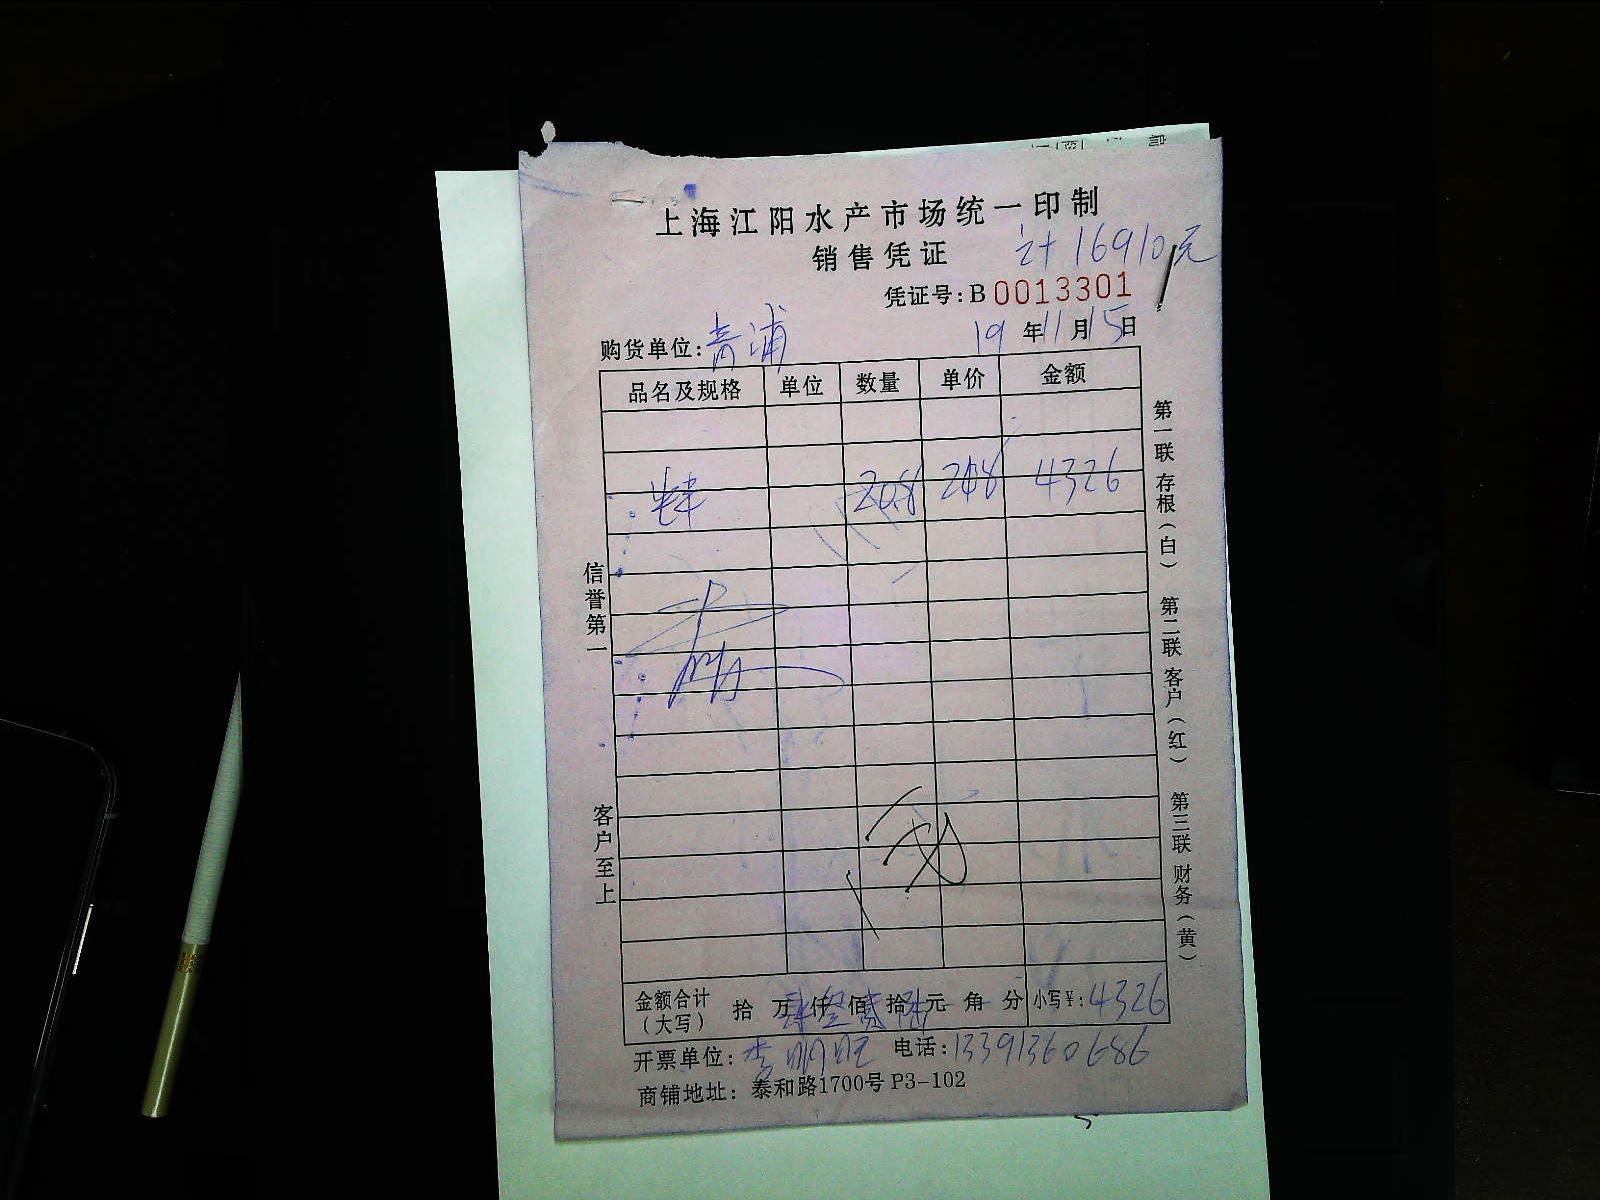 上海江阳水产市场统一印制
销售凭证
计16910元
凭证号:B 0013301
购货单位:青浦 19年11月15日
品名及规格 单位 数量 单价 金额
20.8 208 4326
信誉第一
客户至上
第一联 存根(白)
第二联 客户(红)
第三联 财务(黄)
金额合计(大写) 拾 万肆仟叁佰贰拾陆元 角 分 小写¥:4326
开票单位:李明旺 电话:13391360686
商铺地址:泰和路1700号 P3-102